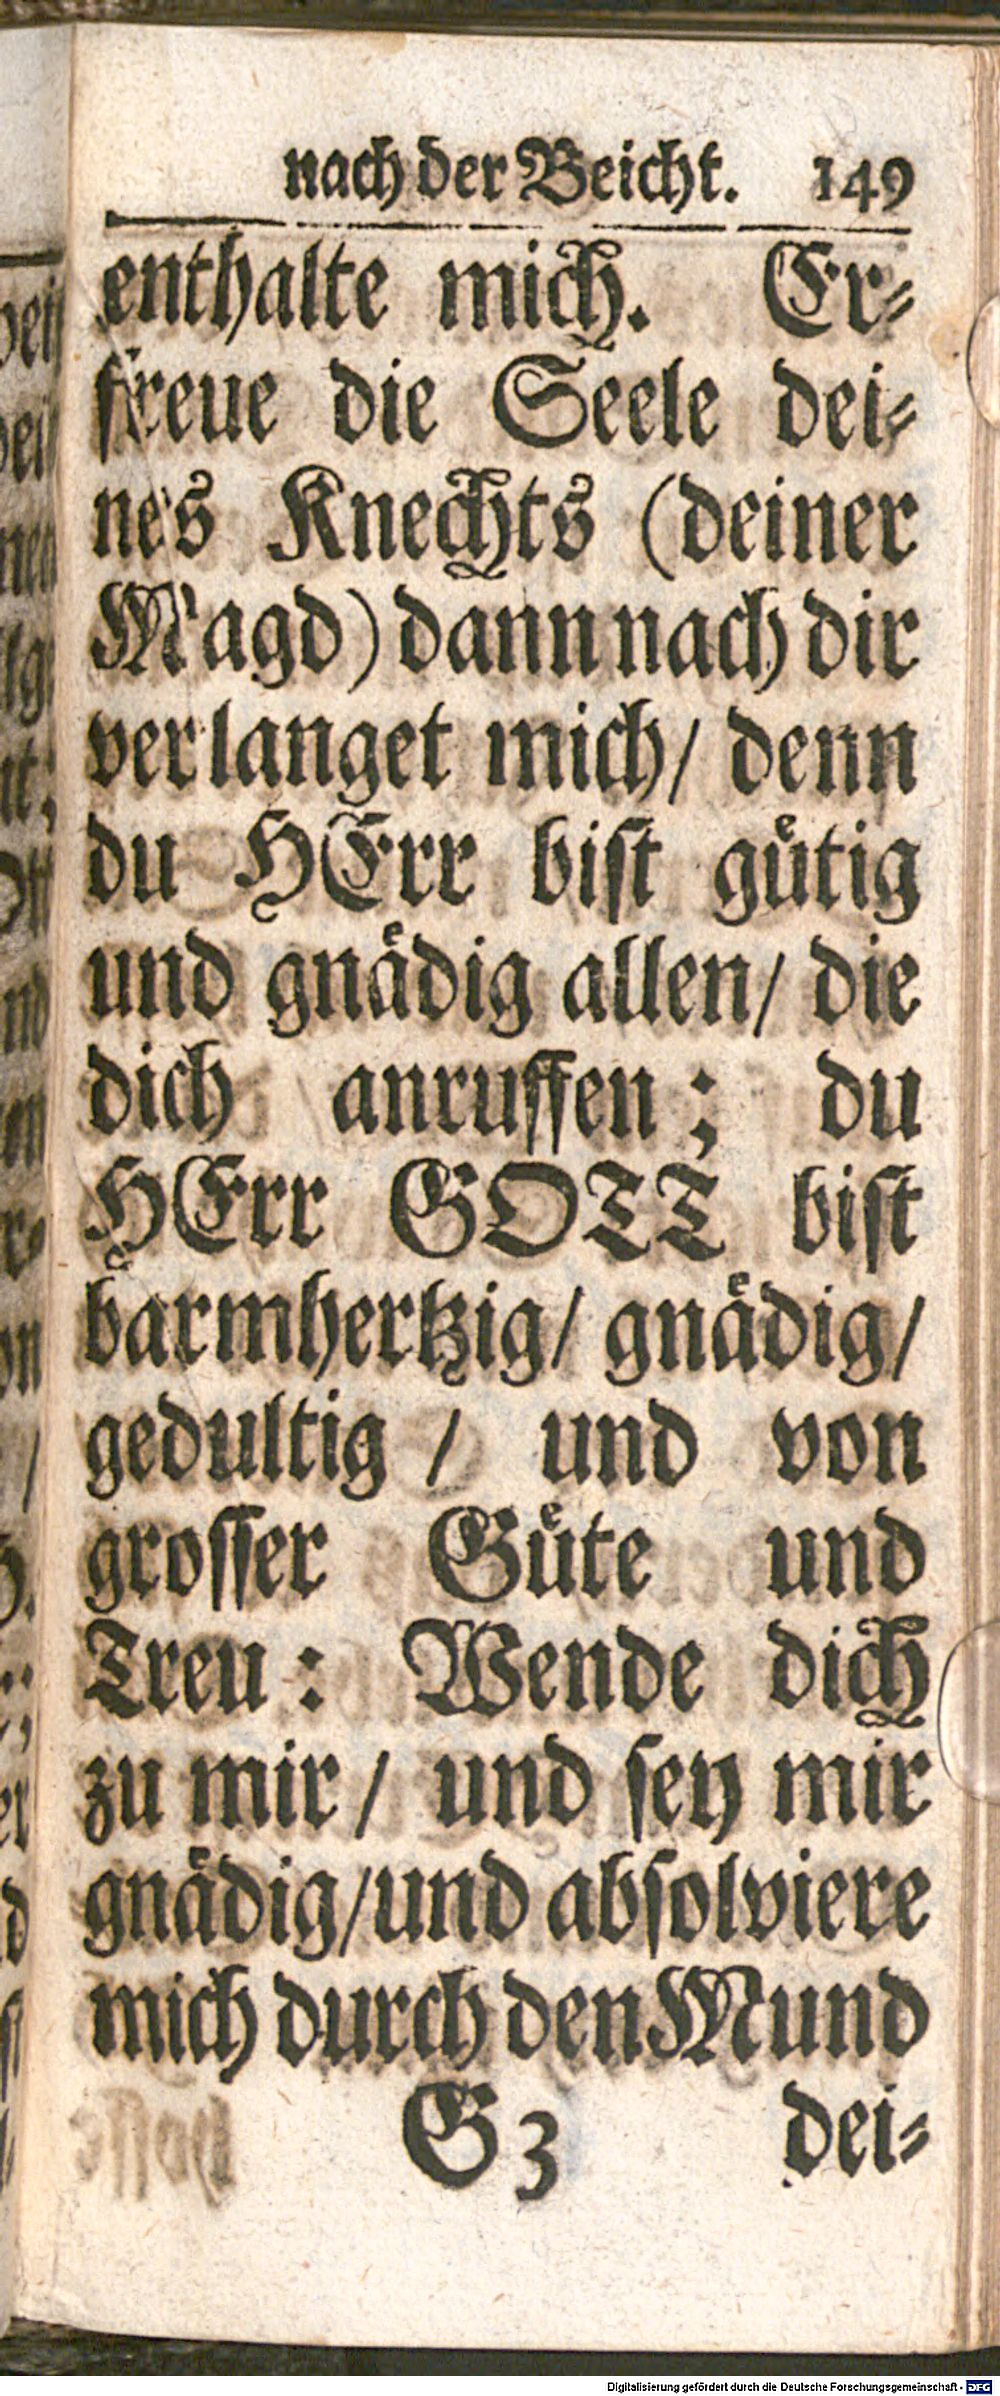 nach der Beicht. 149
enthalte mich. Er⸗
freue die Seele dei⸗
nes Knechts (deiner
Magd) dann nach dir
verlanget mich/ denn
du HErr bist gütig
und gnädig allen/ die
dich anruffen; du
HErr GOTT bist
barmhertzig/ gnädig/
gedultig / und von
grosser Güte und
Treu: Wende dich
zu mir/ und sey mir
gnädig/und absolviere
mich durch den Mund
G 3 dei⸗
Digitalisierung gefördert durch die Deutsche Forschungsgemeinschaft - DFG